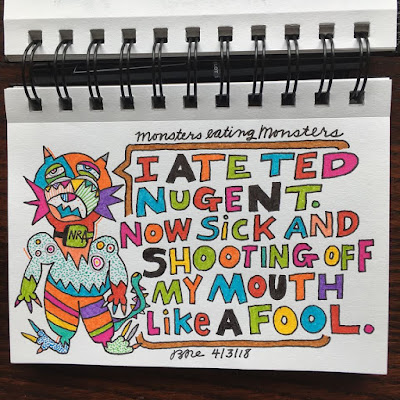 Monsters eating Monsters
I ATE TED
NUGENT.
NOW SICK AND
SHOOTING OFF
MY MOUTH
Like A FOOL.
NRA
4/3/18